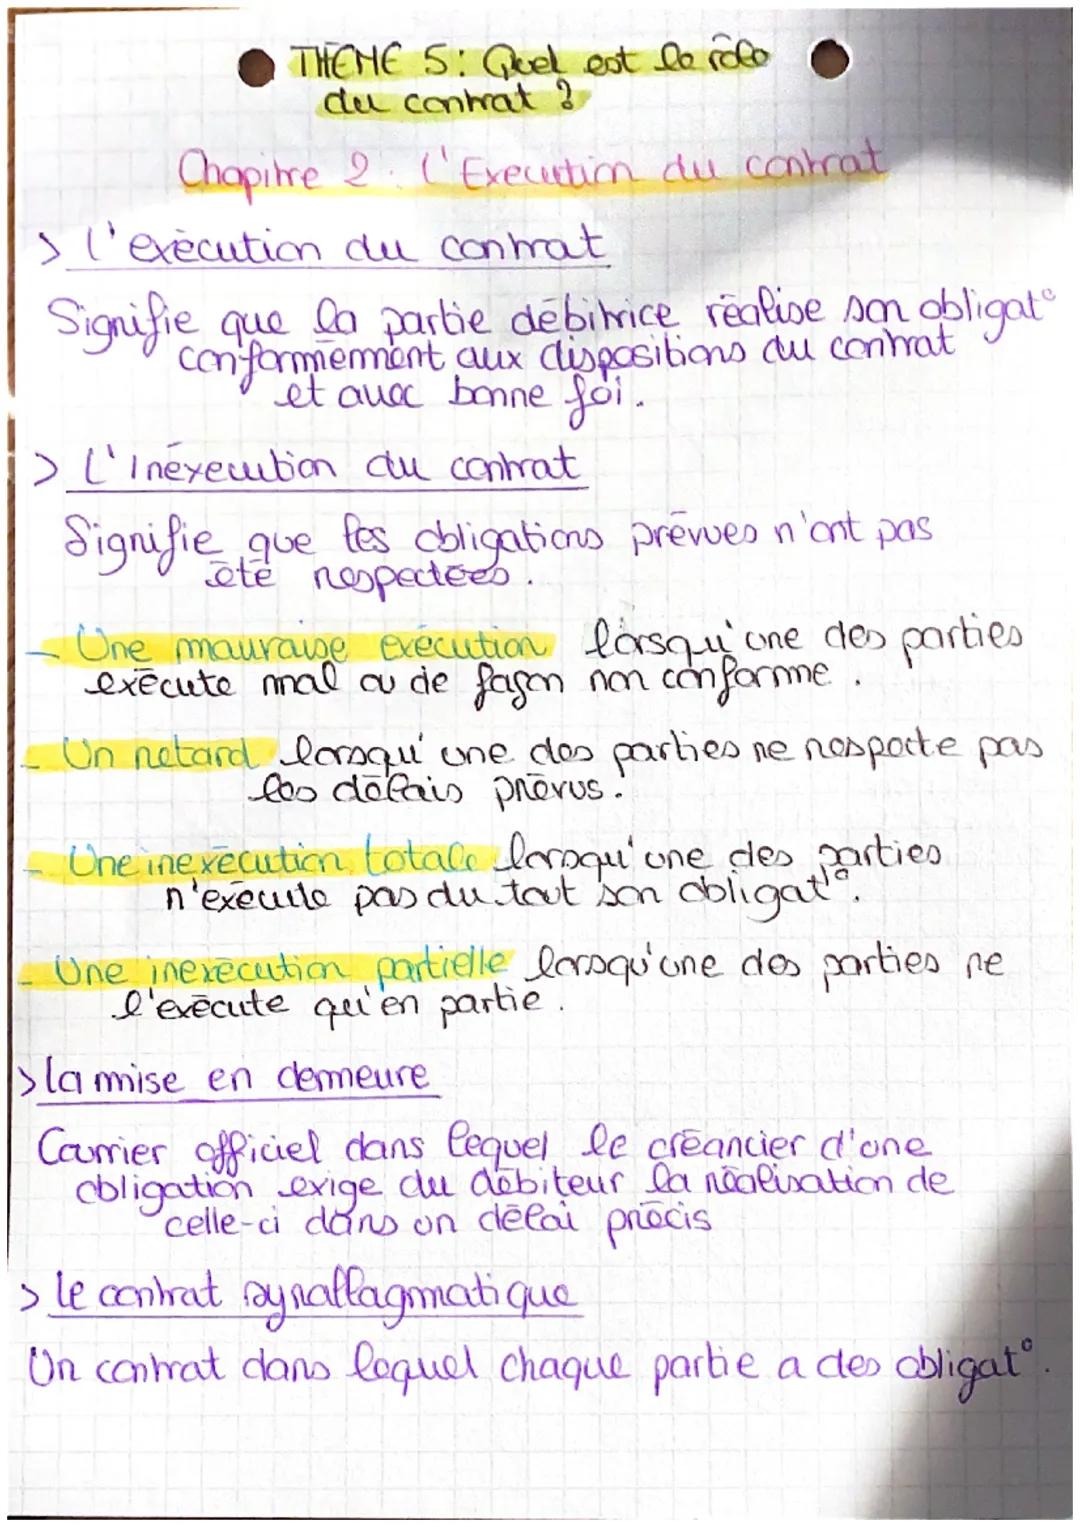 THEME 5: Quel est le rôle
du contrat ?
Chapitre 2 : L'Execution du contrat
> L'exécution du contrat
Signifie que la partie débitrice réalise son obligat°
conformément aux dispositions du contrat
et avec bonne foi.
> L'Inéxecution du contrat
Signifie que les obligations prévues n'ont pas
été respectées.
- Une mauvaise exécution lorsqu'une des parties
exécute mal ou de façon non conforme.
- Un retard lorsqu'une des parties ne respecte pas
les délais prévus.
- Une inexécution totale lorsqu'une des parties
n'exécute pas du tout son obligat°.
- Une inexécution partielle lorsqu'une des parties ne
l'exécute qu'en partie.
> la mise en demeure
Courrier officiel dans lequel le créancier d'une
obligation exige du débiteur la réalisation de
celle-ci dans un délai précis
> le contrat synallagmatique
Un contrat dans lequel chaque partie a des obligat°.